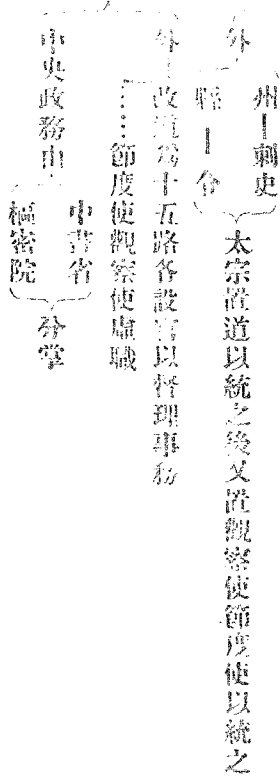 外
州—刺史
縣—令
太宗置道以統之後又置觀察使節度使以統之
外—改道爲十五路各設官以督理事務
……節度使觀察使虛職
中央政務由
中書省
樞密院
分掌